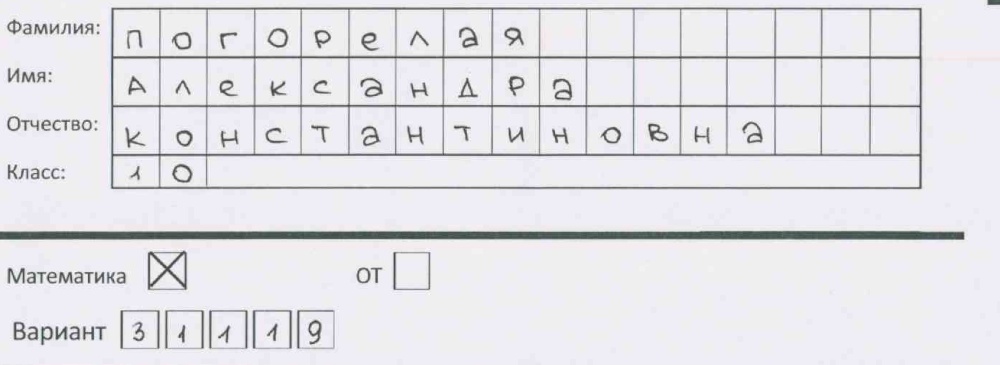 Фамилия: Погорелая
Имя: Александра
Отчество: Константиновна
Класс: 10
Математика ☒ ОТ ☐
Вариант 31119